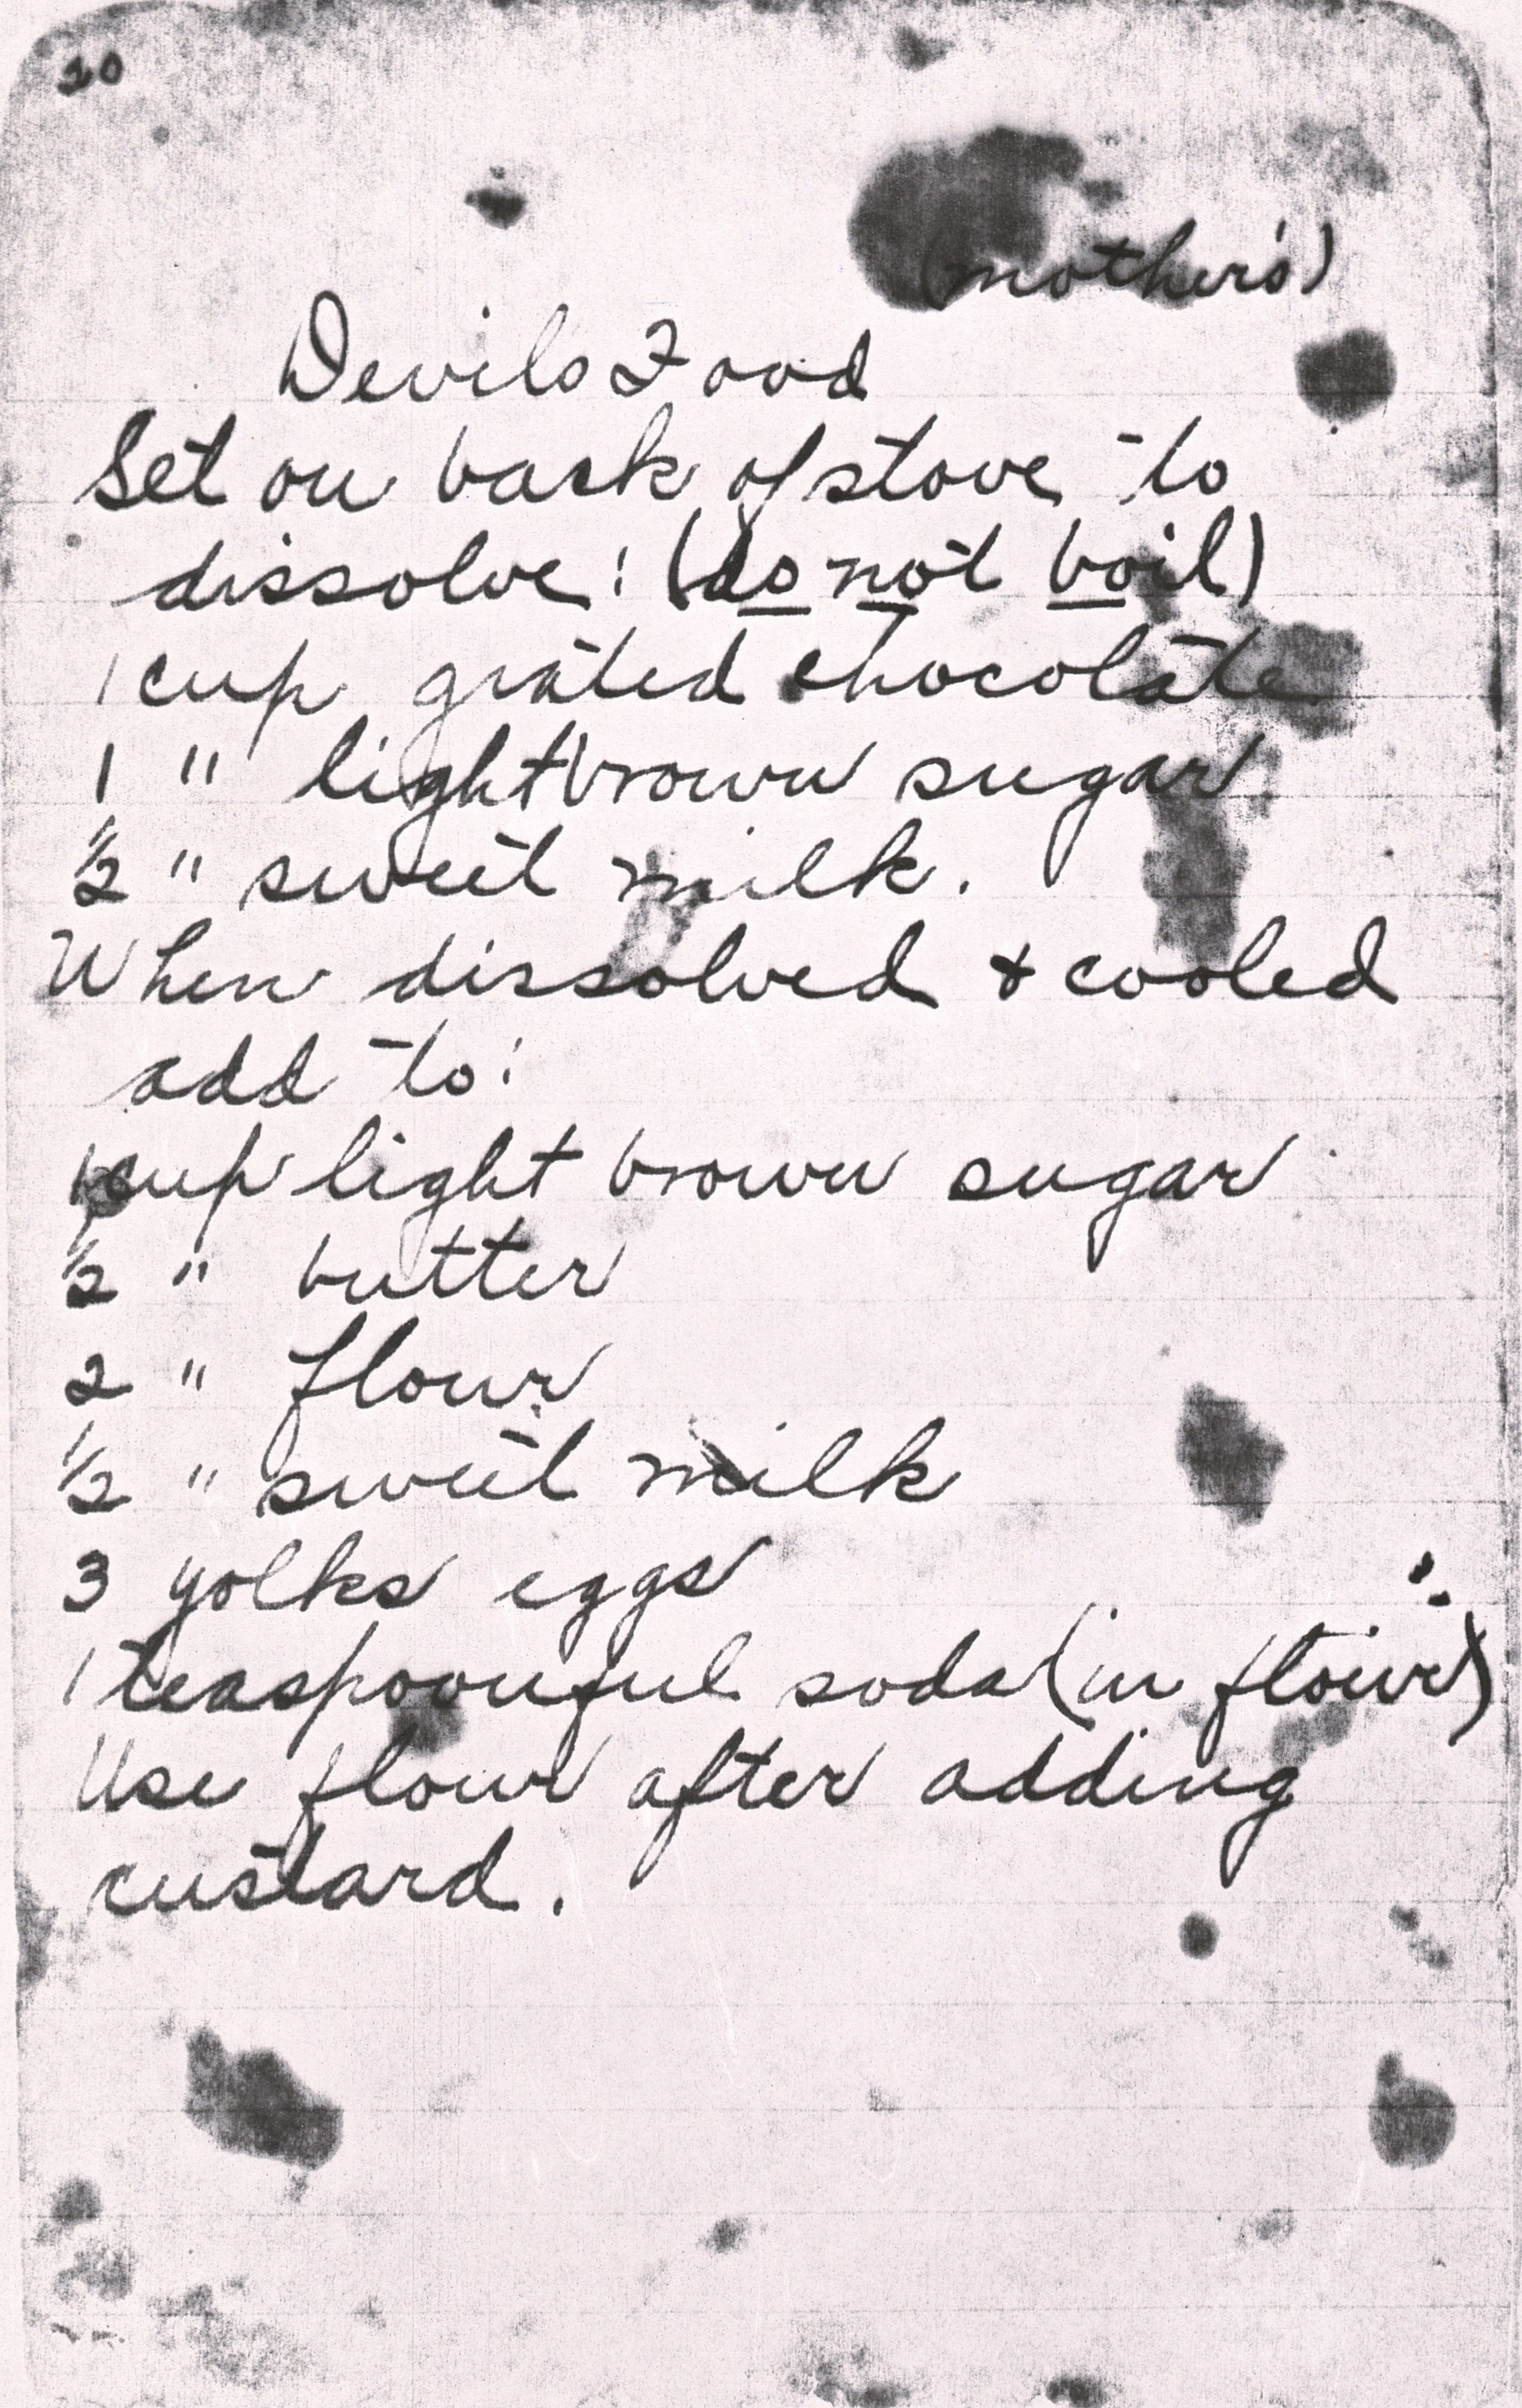 20
(mother's)
Devils Food
Set on back of stove to
dissolve: (do not boil)
1 cup grated chocolate
1 " light brown sugar
½ " sweet milk.
When dissolved & cooled
add to:
1 cup light brown sugar
½ " butter
2 " flour
½ " sweet milk
3 yolks eggs
1 teaspoonful soda (in flour)
Use flour after adding
custard.